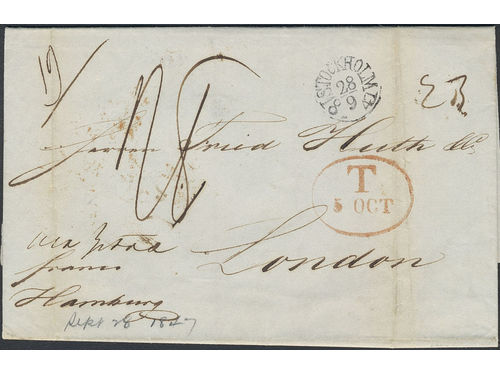 19/
STOCKHOLM
28
9
23
Herrn Fried Huth &Co
T
5 OCT
via Ystad
London
franco
Hamburg
Sept 28 1847